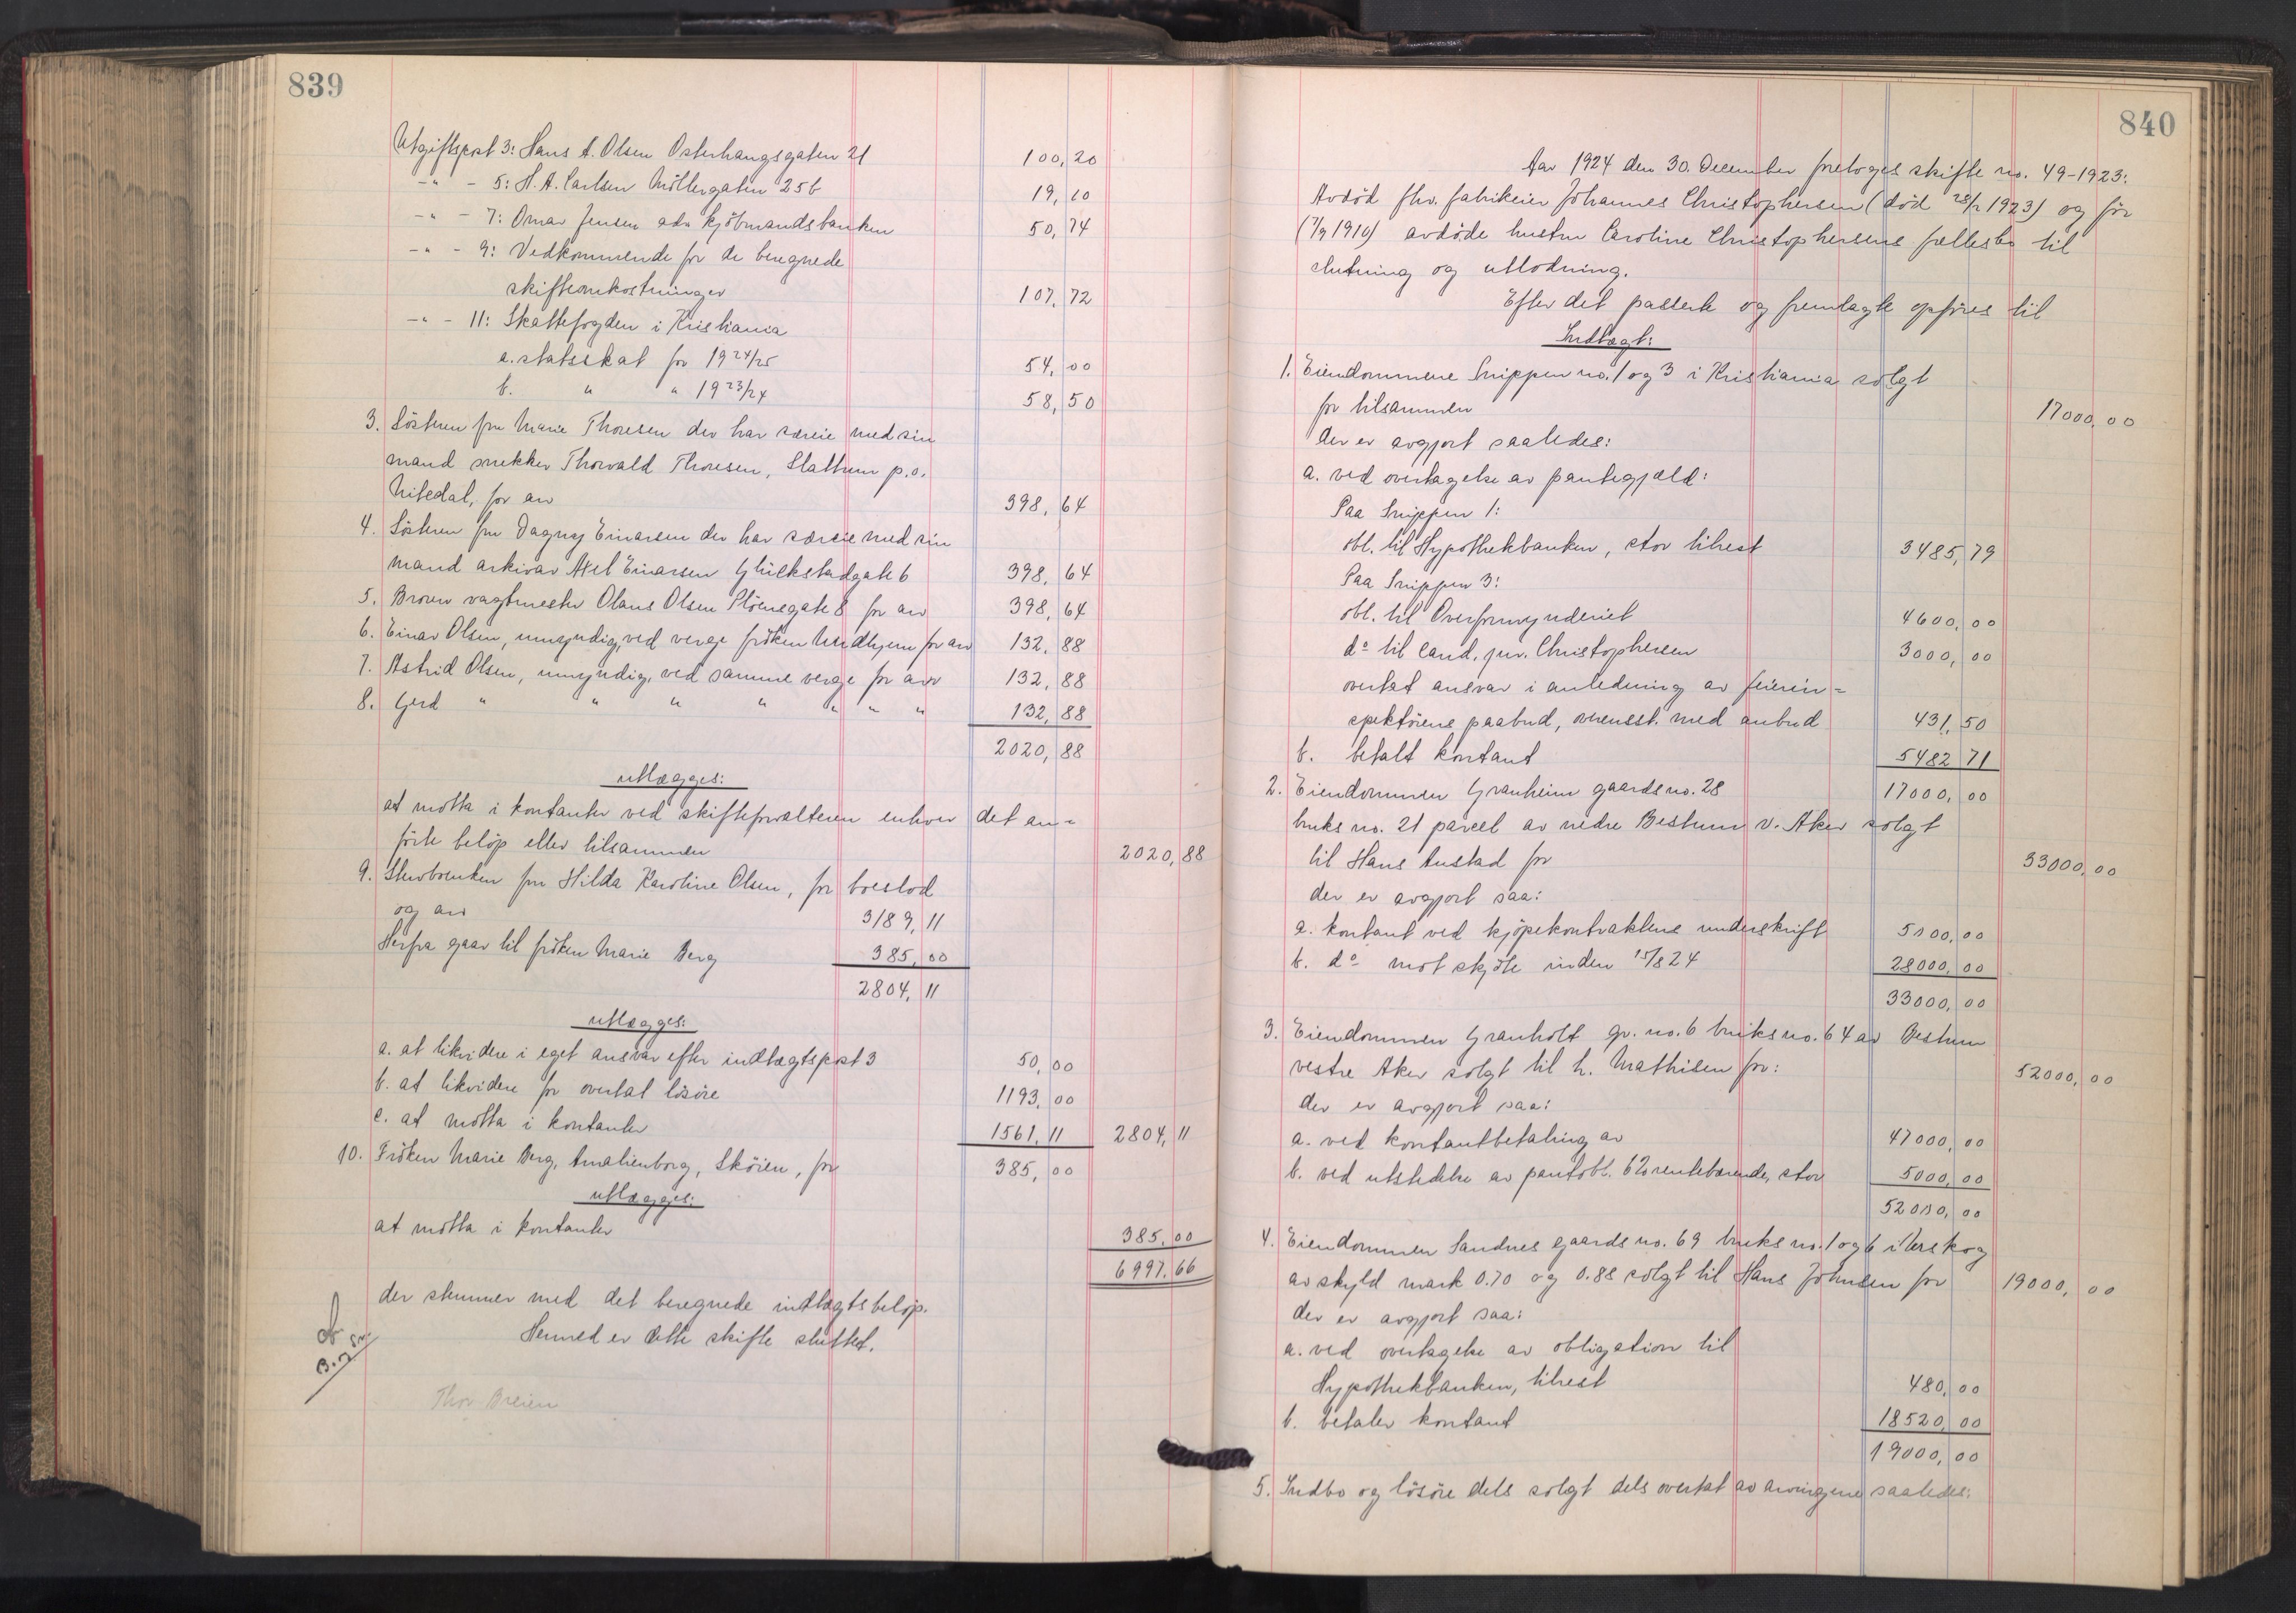 839
Utgiftspost 3: Hans A. Olsen Osterhausgaten 21 100,20
-"- - 5: H. A. Carlsen Möllergaten 25b 19,10
-"- - 7: Omar Jensen adr kjöbmandsbanken 50,74
-"- - 9: Vedkommende for de beregnede
skifteomkostninger 107,72
-"- - 11: Skattefogden i Kristiania
a. statsskat for 1924/25 54,00
b. " " 1923/24 58,50
3. Sösteren fru Marie Thoresen der har særeie med sin
mand snekker Thorvald Thoresen, Slattum p.o.
Nitedal, for arv 398,64
4. Sösteren fru Dagny Einarsen der har særeie med sin
mand arkivar Axel Einarsen Glückstadgate 6 398,64
5. Broren vagtmester Olaus Olsen Stöensgate 8 for arv 398,64
6. Einar Olsen, umyndig, ved verge fröken Undhjem for arv 132,88
7. Astrid Olsen, umyndig, ved samme verge for arv 132,88
8. Gerd " " " " " " " 132,88
2020,88
utlægges:
at motta i kontanter ved skifteforvalteren enhver det an=
förte belöp eller tilsammen 2020,88
9. Stervboenken fru Hilda Karoline Olsen, for boeslod
og arv 3189,11
Herfra gaar til fröken Marie Berg 385,00
2804,11
utlægges:
a. at likvidere i eget ansvar efter indtægtspost 3 50,00
b. at likvidere for overtat lösöre 1193,00
c. at motta i kontanter 1561,11 2804,11
10. Fröken Marie Berg, Amalienborg, Sköien, for 385,00
utlægges:
at motta i kontanter 385,00
6997,66
der stemmer med det beregnede indtægtsbelöp.
Hermed er dette skifte sluttet.
Thor Breien
840
Aar 1924 den 30. December foretoges skifte no. 49-1923:
Avdöd fhv. fabrikeier Johannes Christophersen (död 28/2 1923) og för
(7/9 1910) avdöde hustru Caroline Christophersens fællesbo til
slutning og utlodning.
Efter det passerte og fremlagte opföres til
Indtægt:
1. Eiendommene Snippen no. 1 og 3 i Kristiania solgt
for tilsammen 17000,00
der er avgjort saaledes:
a. ved overtagelse av pantegjæld:
Paa Snippen 1:
obl. til Hypothekbanken, stor tilrest 3485,79
Paa Snippen 3:
obl. til Overformynderiet 4600,00
do til cand. jur. Christophersen 3000,00
overtat ansvar i anledning av feierin=
spektörens paabud, overensst. med anbud 431,50
b. betalt kontant 5482 71
17000,00
2. Eiendommen Granheim gaards no. 28
bruks no. 21 parcel av nedre Bestum v. Aker solgt
til Hans Austad for 33000,00
der er avgjort saa:
a. kontant ved kjöpekontraktens underskrift 5000,00
b. do mot skjöte inden 15/8 24 28000,00
33000,00
3. Eiendommen Granholt gr. no. 6 bruks no. 64 av Bestum
vestre Aker solgt til h. Mathisen for: 52000,00
der er avgjort saa:
a. ved kontantbetaling av 47000,00
b. ved utstedelse av pantobl. 6% rentebærende, stor 5000,00
52000,00
4. Eiendommen Sandnes gaards no. 69 bruks no. 1 og 6 i Urskog
av skyld mark 0.70 og 0.88 solgt til Hans Johnsen for 19000,00
der er avgjort saa:
a. ved overtagelse av obligation til
Hypothekbanken, tilrest 480,00
b. betaler kontant 18520,00
19000,00
5. Indbo og lösöre dels solgt dels overtat av arvingene saaledes: